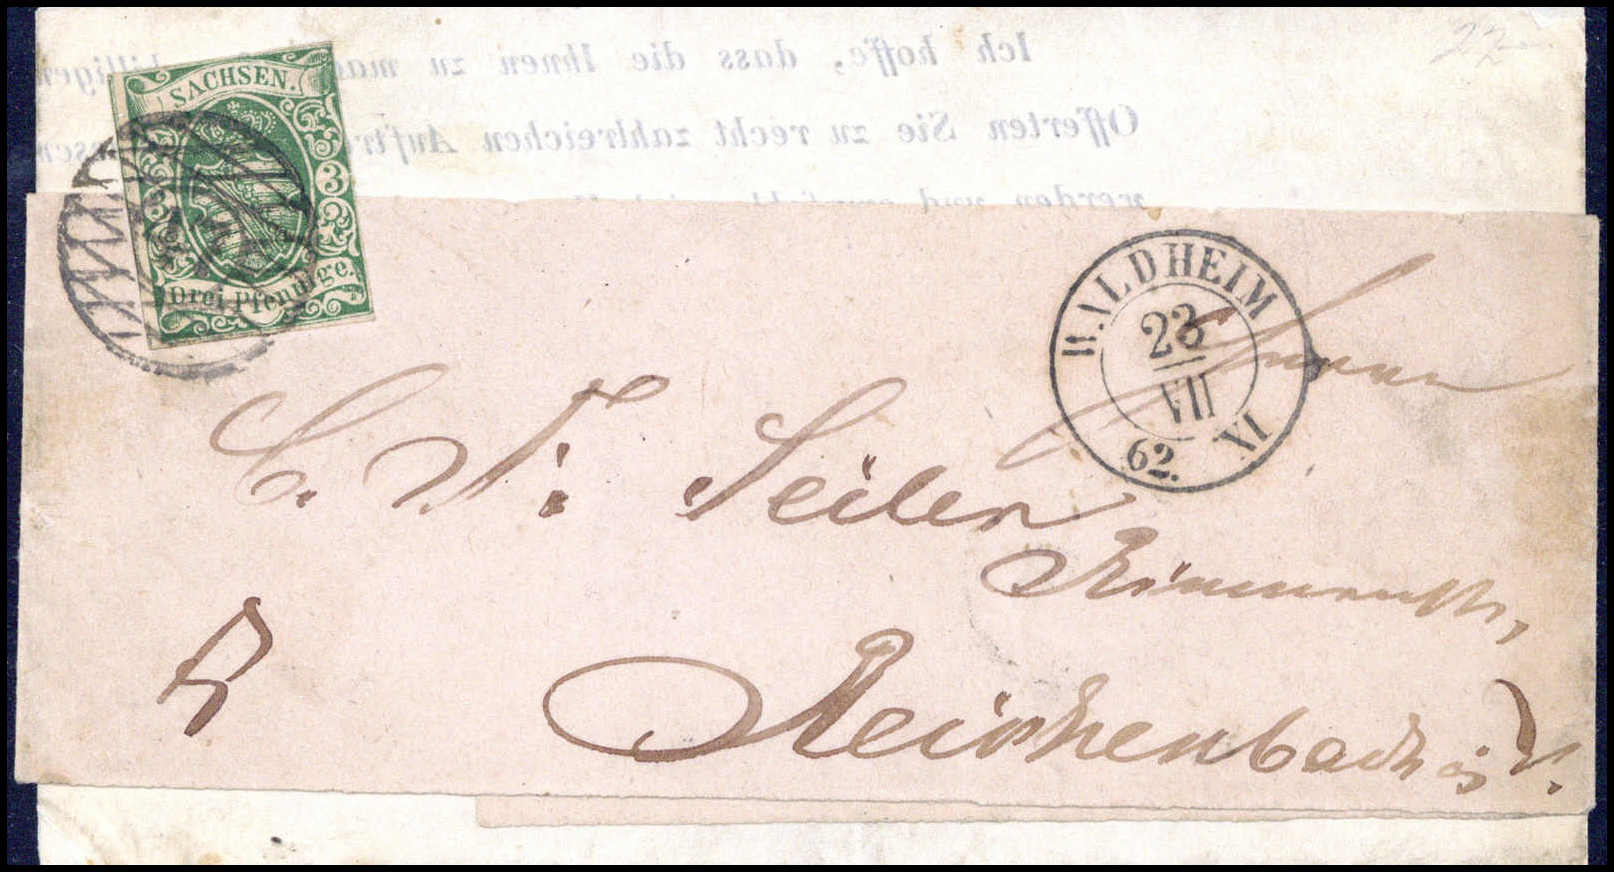 22
Ich hoffe, dass die Ihnen zu billigen
Offerten Sie zu recht zahlreichen
werden und
SACHSEN.
3
Drei Pfennige.
WALDHEIM
23
VII
62. XI
C. F. Seiler
Reichenbach i/V.